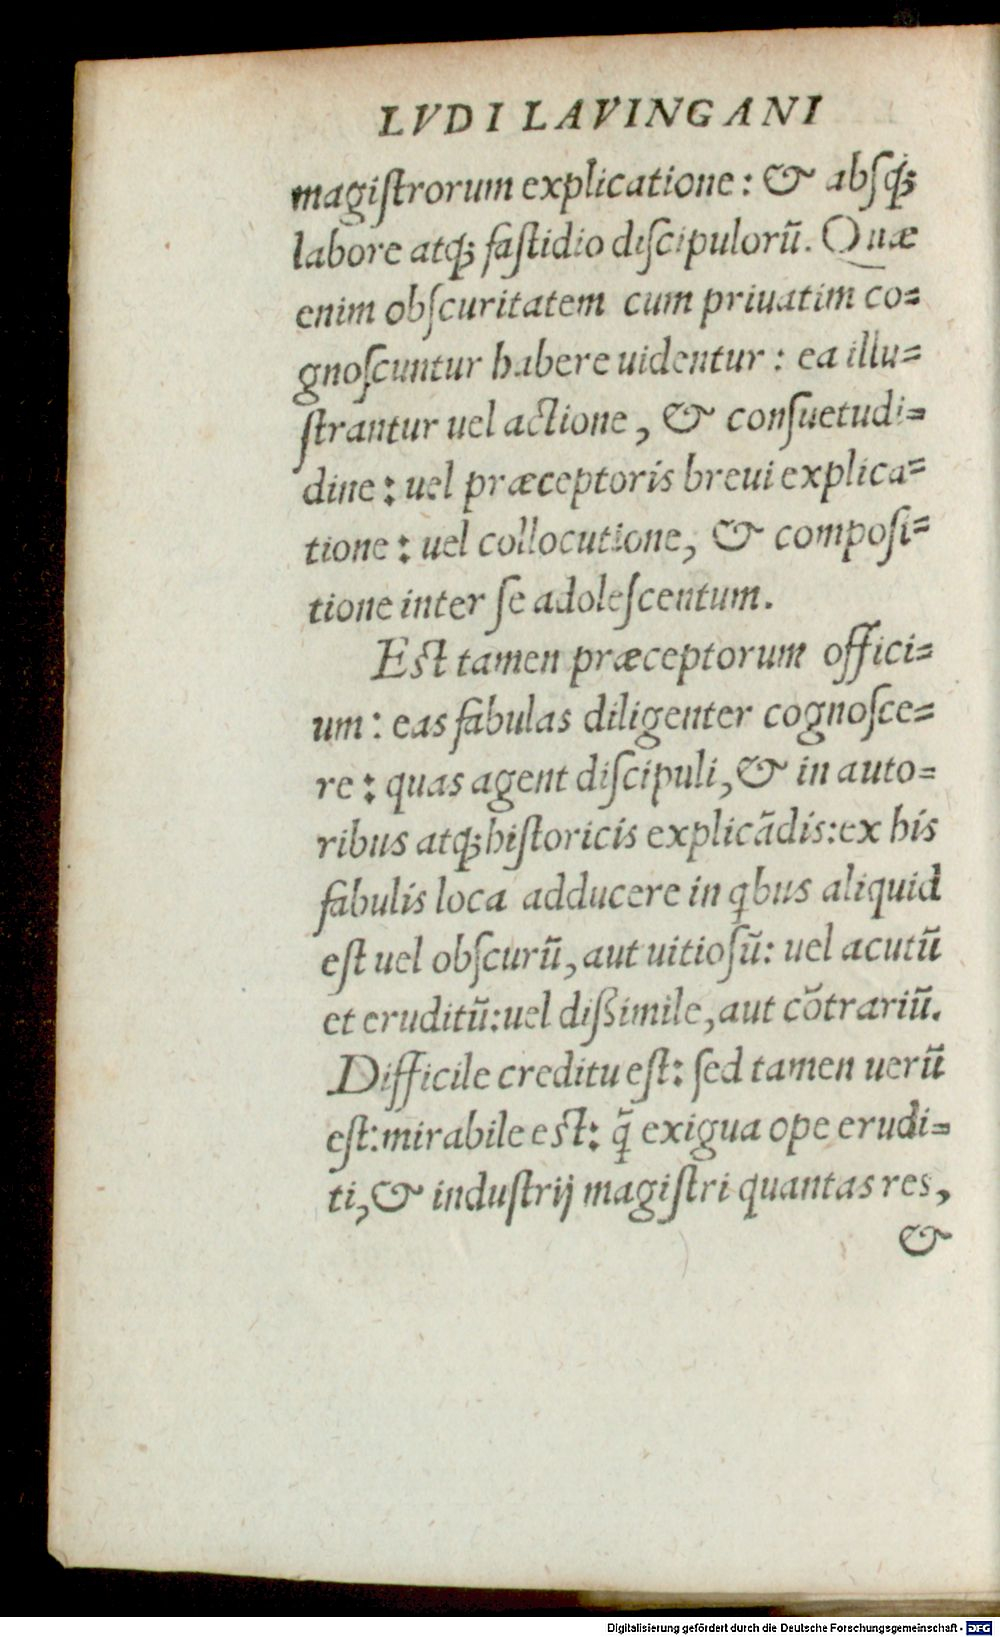 LVDI LAVINGANI
magiſtrorum explicatione: & abſq́;
labore atq; faſtidio diſcipulorũ. Quæ
enim obſcuritatem cum priuatim co=
gnoſcuntur habere uidentur: ea illu=
ſtrantur uel actione, & conſuetudi=
dine: uel præceptoris breui explica=
tione: uel collocutione, & compoſi=
tione inter ſe adoleſcentum.
Eſt tamen præceptorum offici=
um: eas fabulas diligenter cognoſce=
re: quas agent diſcipuli, & in auto=
ribus atq; hiſtoricis explicãdis: ex his
fabulis loca adducere in qbus aliquid
eſt uel obſcurũ, aut uitioſũ: uel acutũ
et eruditũ: uel dißimile, aut cõtrariũ.
Difficile creditu eſt: ſed tamen uerũ
eſt: mirabile eſt: q̃ exigua ope erudi=
ti, & induſtrij magiſtri quantas res,
&
Digitalisierung gefördert durch die Deutsche Forschungsgemeinschaft - DFG